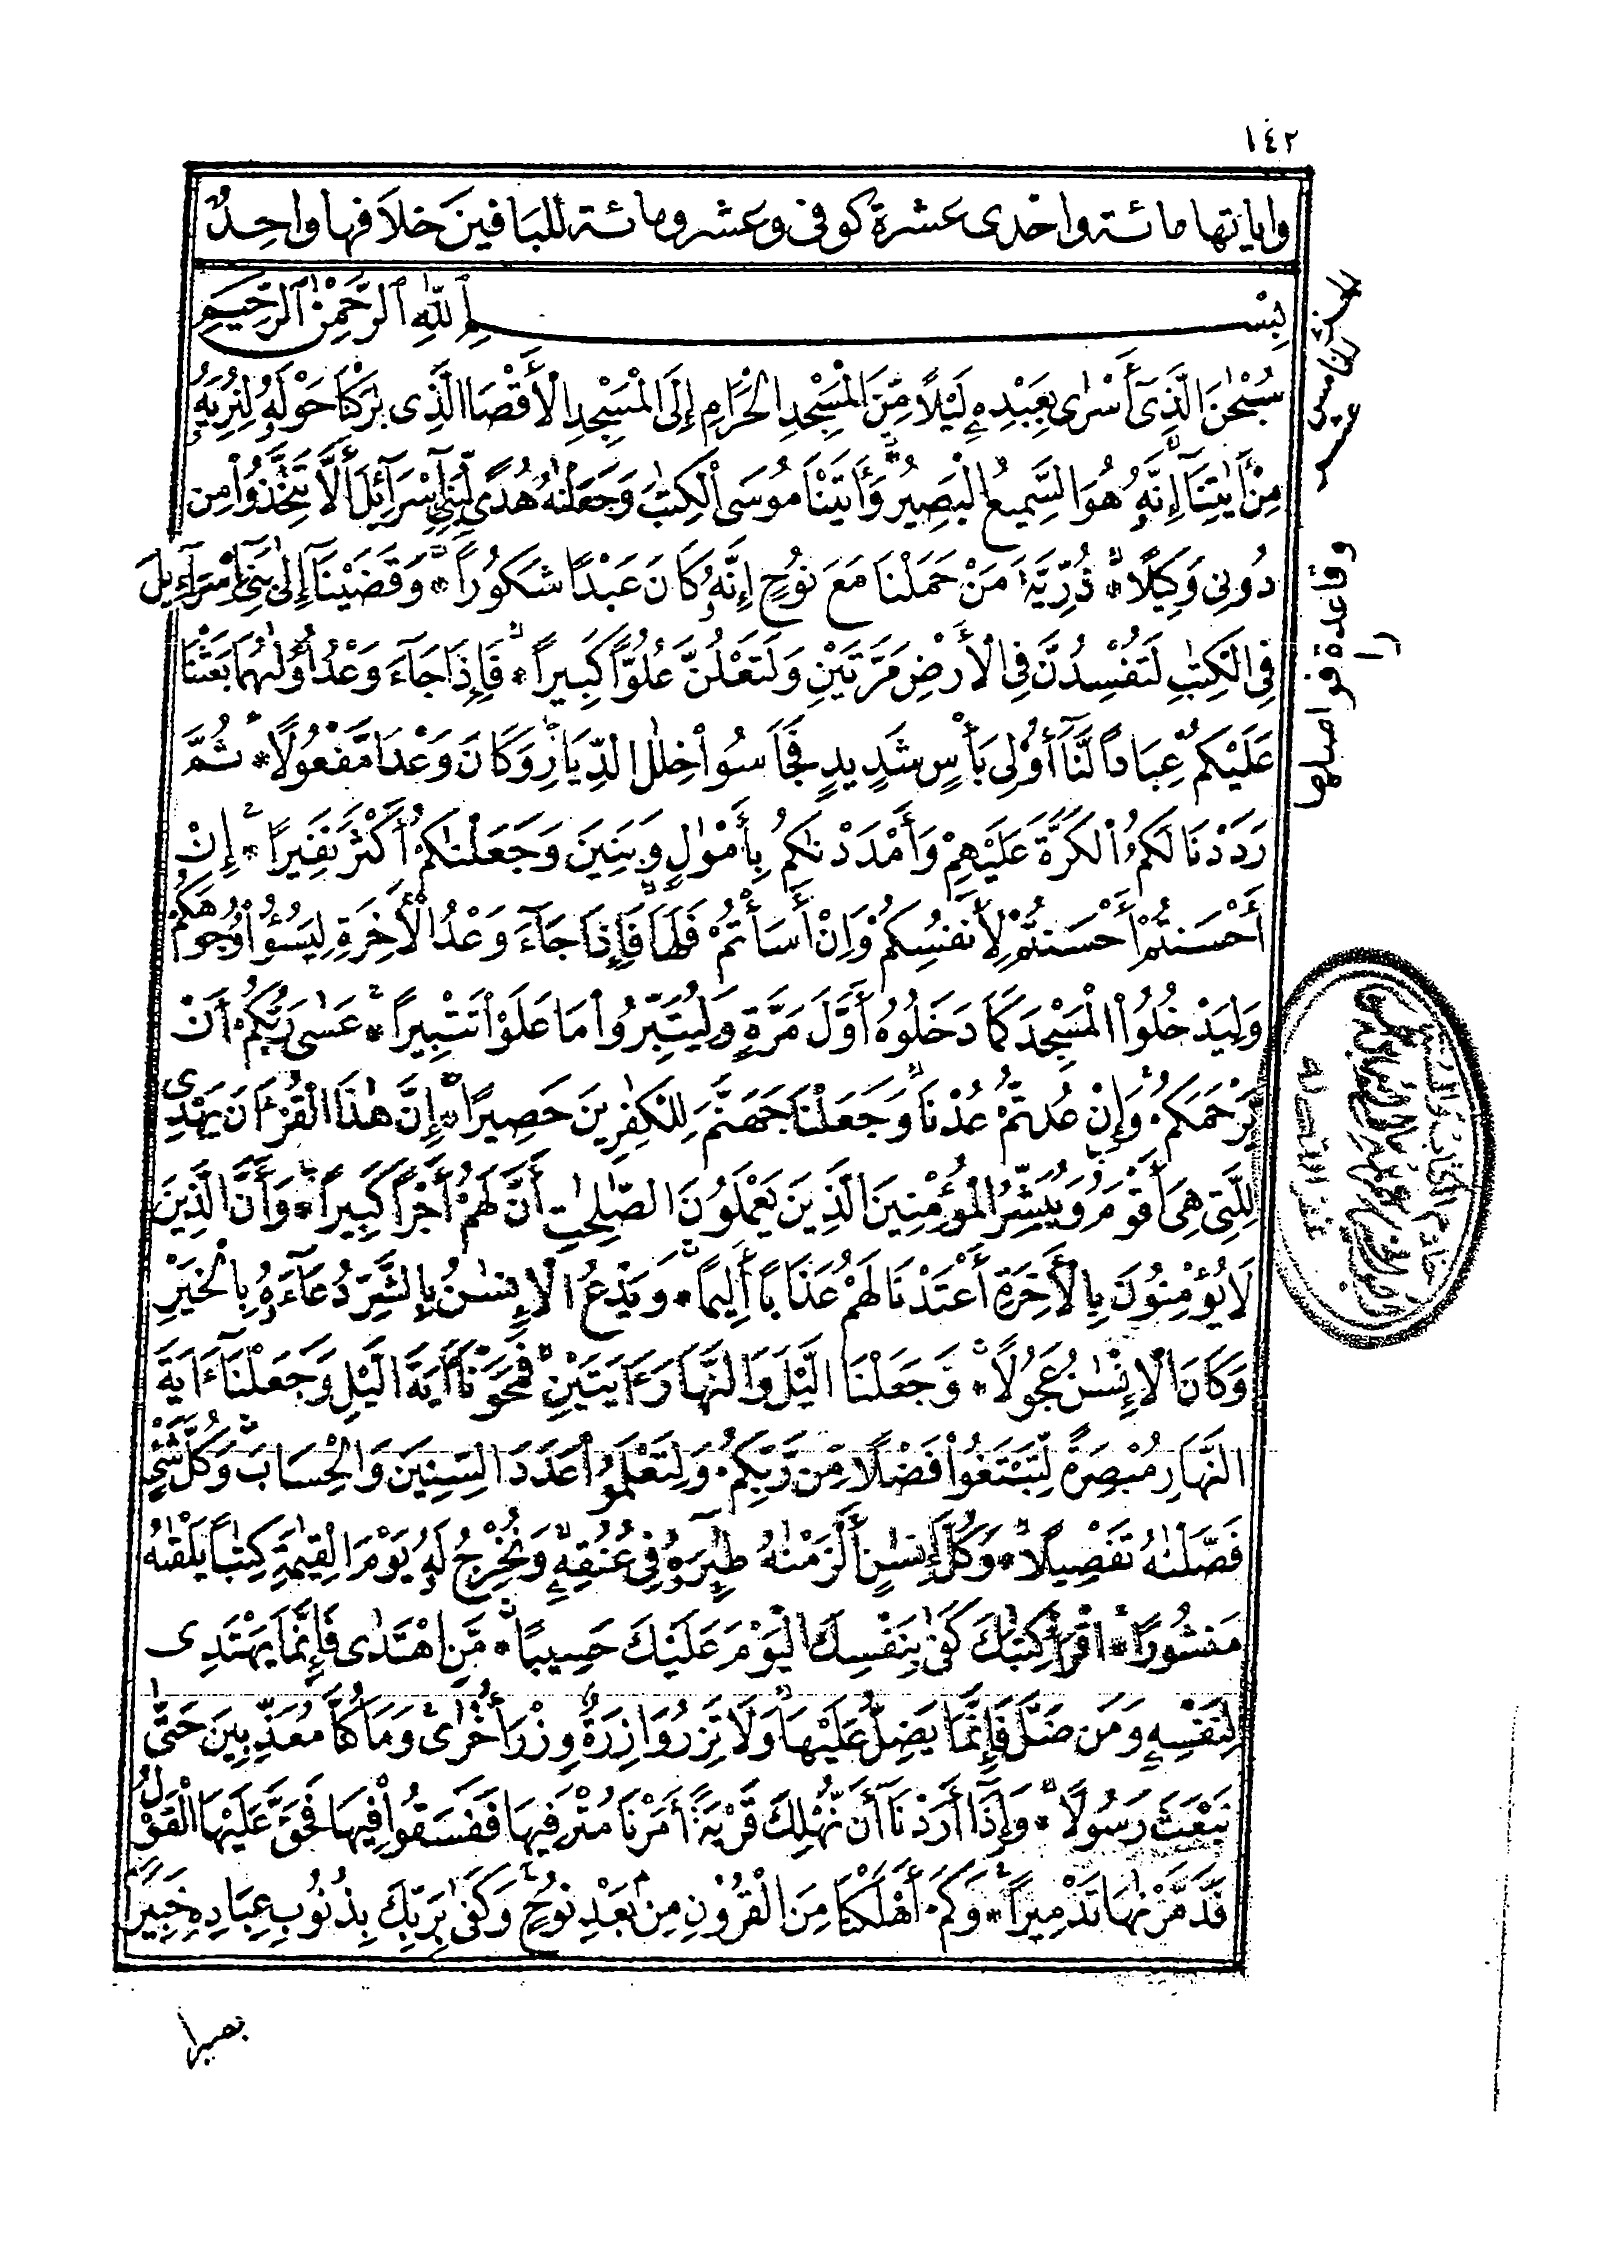 ١٤٢
واياتها مائة واحدى عشرة كوفى وعشر ومائة للباقين خلافها واحد
بِسْمِ ٱللَّهِ ٱلرَّحْمَٰنِ ٱلرَّحِيمِ
سُبْحَٰنَ الَّذِىٓ أَسْرَىٰ بِعَبْدِهِۦ لَيْلًا مِّنَ الْمَسْجِدِ الْحَرَامِ إِلَى الْمَسْجِدِ الْأَقْصَا الَّذِى بَٰرَكْنَا حَوْلَهُۥ لِنُرِيَهُۥ
مِنْ ءَايَٰتِنَآ إِنَّهُۥ هُوَ السَّمِيعُ الْبَصِيرُ وَءَاتَيْنَا مُوسَى الْكِتَٰبَ وَجَعَلْنَٰهُ هُدًى لِّبَنِىٓ إِسْرَآئِيلَ أَلَّا تَتَّخِذُوا۟ مِن
دُونِى وَكِيلًا * ذُرِّيَّةَ مَنْ حَمَلْنَا مَعَ نُوحٍ إِنَّهُۥ كَانَ عَبْدًا شَكُورًا * وَقَضَيْنَآ إِلَىٰ بَنِىٓ إِسْرَآءِيلَ
فِى الْكِتَٰبِ لَتُفْسِدُنَّ فِى الْأَرْضِ مَرَّتَيْنِ وَلَتَعْلُنَّ عُلُوًّا كَبِيرًا * فَإِذَا جَآءَ وَعْدُ أُولَىٰهُمَا بَعَثْنَا
عَلَيْكُمْ عِبَادًا لَّنَآ أُو۟لِى بَأْسٍ شَدِيدٍ فَجَاسُوا۟ خِلَٰلَ الدِّيَارِ وَكَانَ وَعْدًا مَّفْعُولًا * ثُمَّ
رَدَدْنَا لَكُمُ الْكَرَّةَ عَلَيْهِمْ وَأَمْدَدْنَٰكُم بِأَمْوَٰلٍ وَبَنِينَ وَجَعَلْنَٰكُمْ أَكْثَرَ نَفِيرًا * إِنْ
أَحْسَنتُمْ أَحْسَنتُمْ لِأَنفُسِكُمْ وَإِنْ أَسَأْتُمْ فَلَهَا فَإِذَا جَآءَ وَعْدُ الْأَخِرَةِ لِيَسُۥٓـُٔوا۟ وُجُوهَكُمْ
وَلِيَدْخُلُوا۟ الْمَسْجِدَ كَمَا دَخَلُوهُ أَوَّلَ مَرَّةٍ وَلِيُتَبِّرُوا۟ مَا عَلَوْا۟ تَتْبِيرًا * عَسَىٰ رَبُّكُمْ أَن
يَرْحَمَكُمْ وَإِنْ عُدتُّمْ عُدْنَا وَجَعَلْنَا جَهَنَّمَ لِلْكَٰفِرِينَ حَصِيرًا * إِنَّ هَٰذَا الْقُرْءَانَ يَهْدِى
لِلَّتِى هِىَ أَقْوَمُ وَيُبَشِّرُ الْمُؤْمِنِينَ الَّذِينَ يَعْمَلُونَ الصَّٰلِحَٰتِ أَنَّ لَهُمْ أَجْرًا كَبِيرًا * وَأَنَّ الَّذِينَ
لَا يُؤْمِنُونَ بِالْأَخِرَةِ أَعْتَدْنَا لَهُمْ عَذَابًا أَلِيمًا * وَيَدْعُ الْإِنسَٰنُ بِالشَّرِّ دُعَآءَهُۥ بِالْخَيْرِ
وَكَانَ الْإِنسَٰنُ عَجُولًا * وَجَعَلْنَا الَّيْلَ وَالنَّهَارَ ءَايَتَيْنِ فَمَحَوْنَآ ءَايَةَ الَّيْلِ وَجَعَلْنَآ ءَايَةَ
النَّهَارِ مُبْصِرَةً لِّتَبْتَغُوا۟ فَضْلًا مِّن رَّبِّكُمْ وَلِتَعْلَمُوا۟ عَدَدَ السِّنِينَ وَالْحِسَابَ وَكُلَّ شَىْءٍ
فَصَّلْنَٰهُ تَفْصِيلًا * وَكُلَّ إِنسَٰنٍ أَلْزَمْنَٰهُ طَٰٓئِرَهُۥ فِى عُنُقِهِۦ وَنُخْرِجُ لَهُۥ يَوْمَ الْقِيَٰمَةِ كِتَٰبًا يَلْقَىٰهُ
مَنشُورًا * اقْرَأْ كِتَٰبَكَ كَفَىٰ بِنَفْسِكَ الْيَوْمَ عَلَيْكَ حَسِيبًا * مَّنِ اهْتَدَىٰ فَإِنَّمَا يَهْتَدِى
لِنَفْسِهِۦ وَمَن ضَلَّ فَإِنَّمَا يَضِلُّ عَلَيْهَا وَلَا تَزِرُ وَازِرَةٌ وِزْرَ أُخْرَىٰ وَمَا كُنَّا مُعَذِّبِينَ حَتَّىٰ
نَبْعَثَ رَسُولًا * وَإِذَآ أَرَدْنَآ أَن نُّهْلِكَ قَرْيَةً أَمَرْنَا مُتْرَفِيهَا فَفَسَقُوا۟ فِيهَا فَحَقَّ عَلَيْهَا الْقَوْلُ
فَدَمَّرْنَٰهَا تَدْمِيرًا * وَكَمْ أَهْلَكْنَا مِنَ الْقُرُونِ مِنۢ بَعْدِ نُوحٍ وَكَفَىٰ بِرَبِّكَ بِذُنُوبِ عِبَادِهِۦ خَبِيرًا
بصيرا
وقاعدة فواصلها
ا